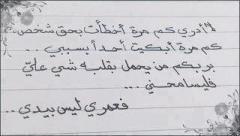 لا أدري كم مرة أخطأت بحق شخص
كم مرة أبكيت أحداً بسببي ..
بربكم من يحمل بقلبه شي عليّ
فليسامحني ...
فعمري ليس بيدي ..